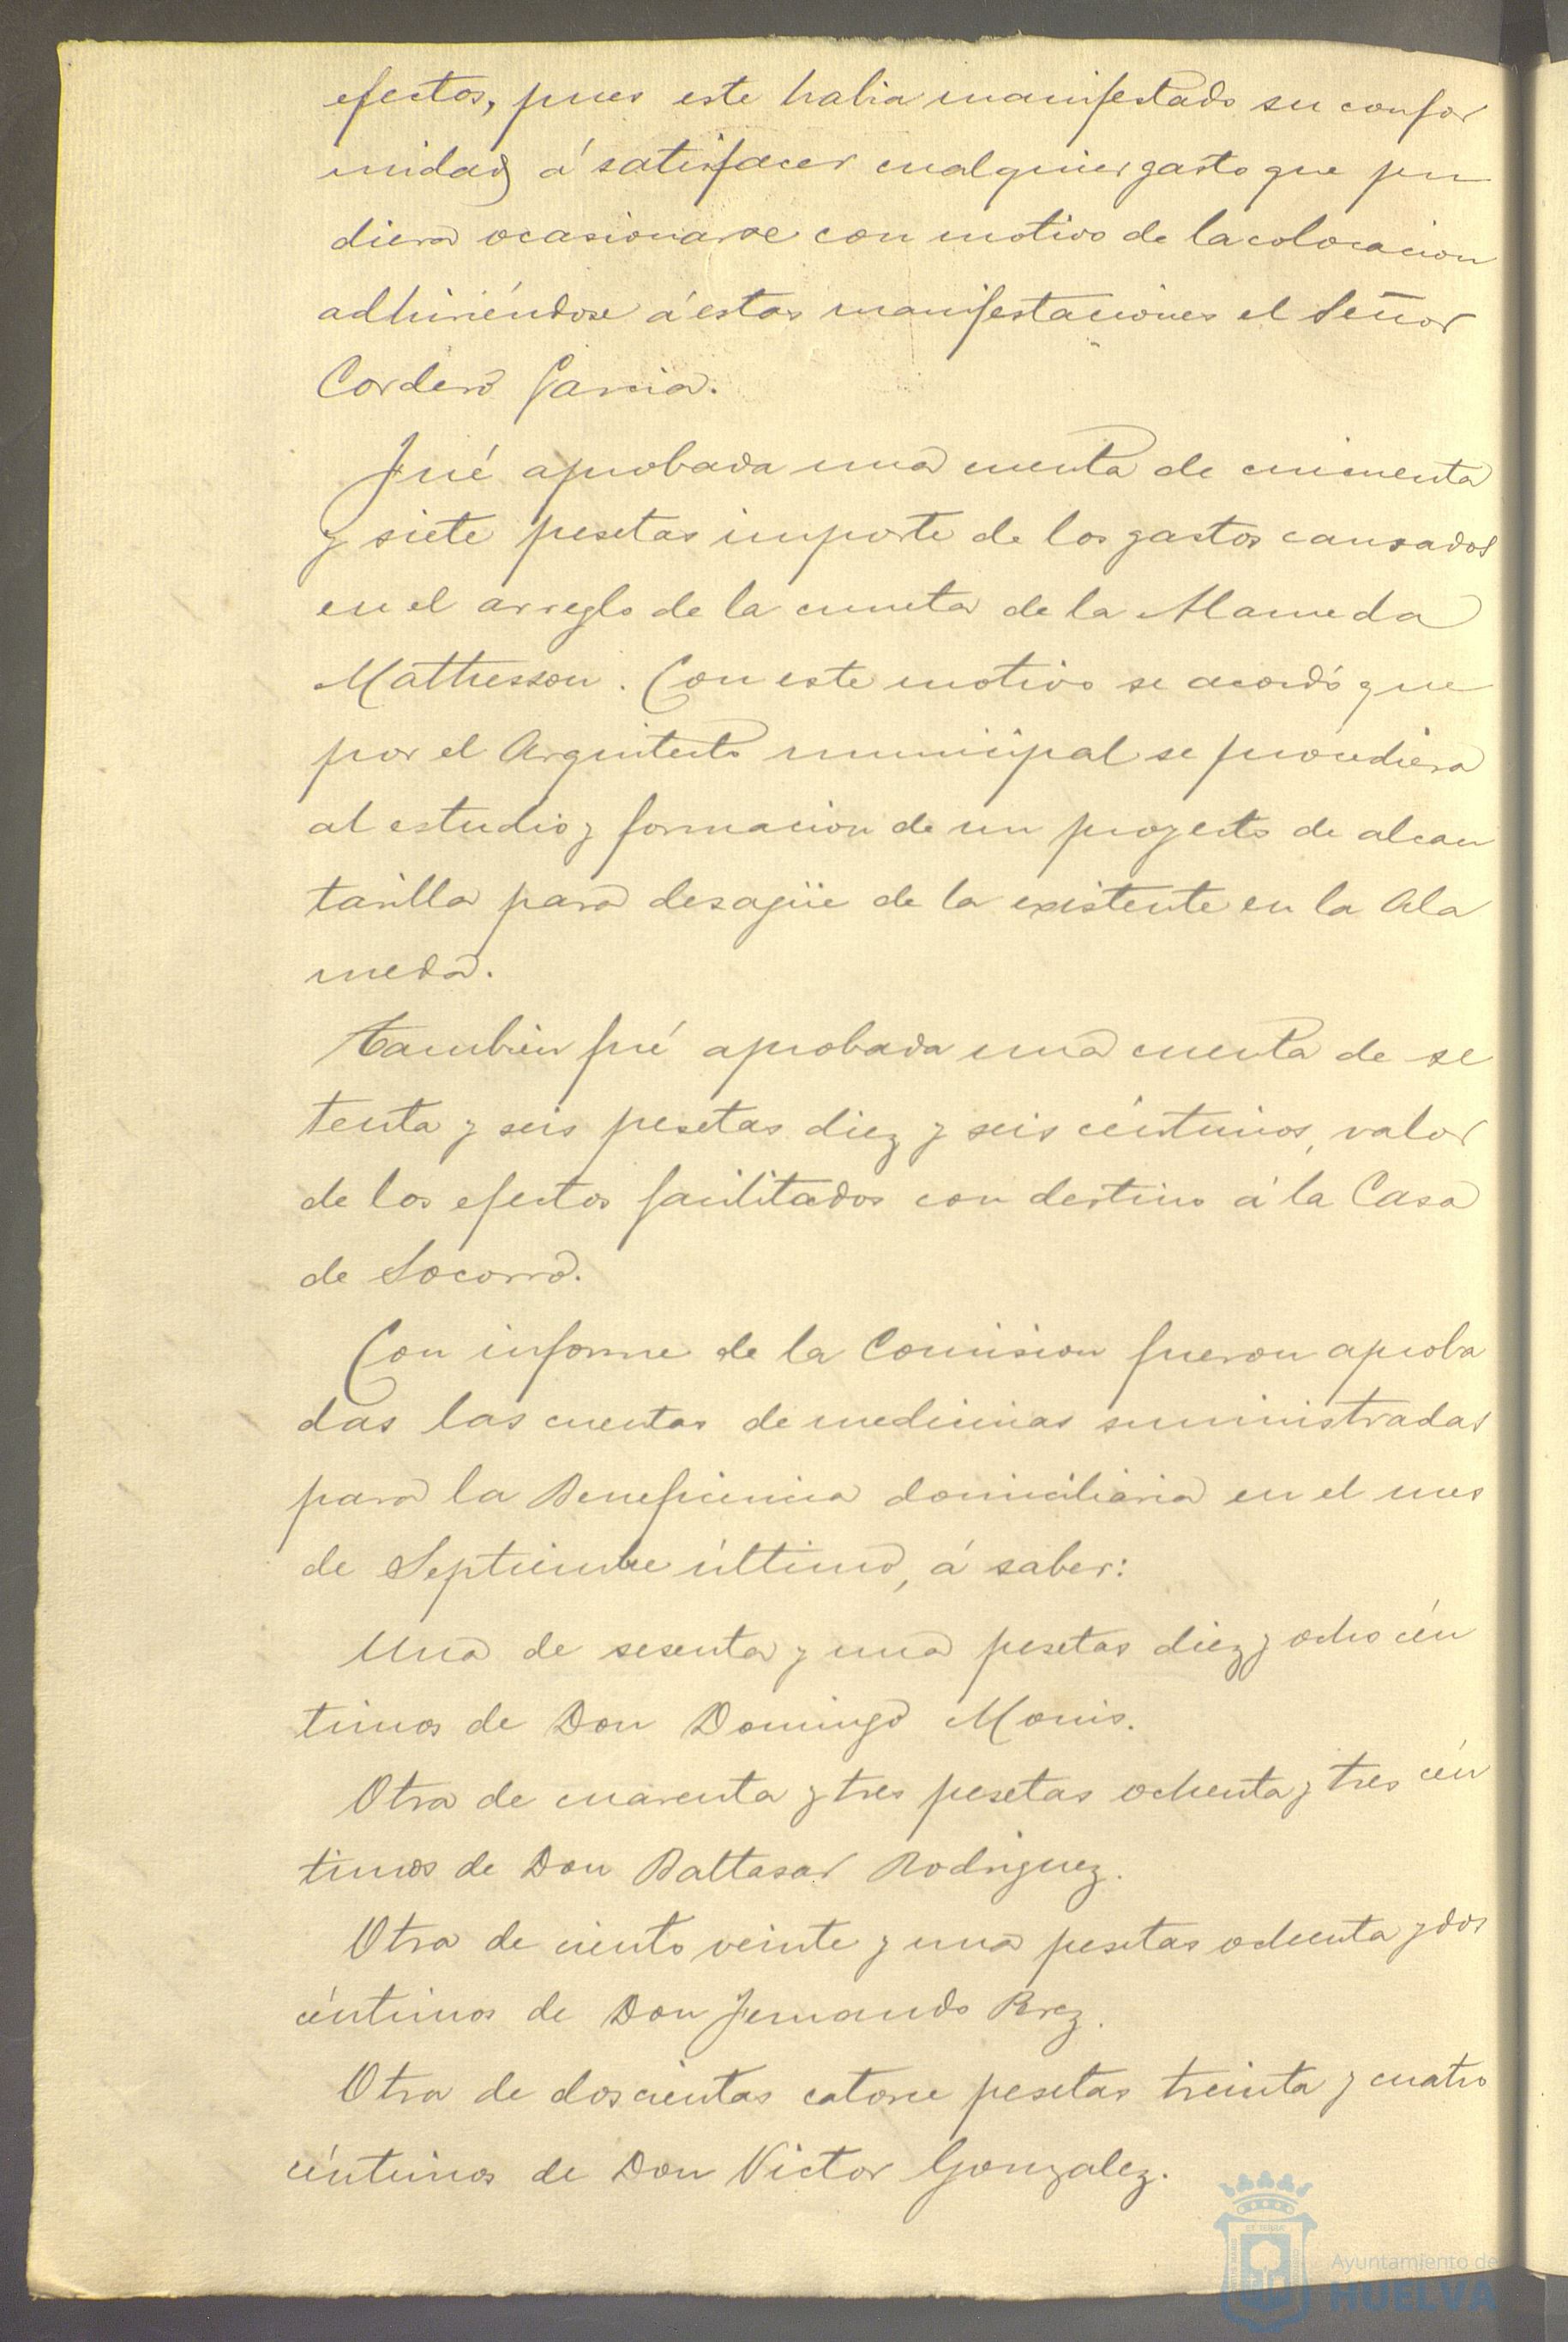 efectos, pues este habia manifestado su confor
midad á satisfacer cualquier gasto que pu
diera ocasionarse con motivo de la colocacion
adhiriéndose á estas manifestaciones el Señor
Cordero Garcia.
Fué aprobada una cuenta de cincuenta
y siete pesetas importe de los gastos causados
en el arreglo de la cuneta de la Alameda
Mathesson. Con este motivo se acordó que
por el Arquitecto municipal se procediera
al estudio y formacion de un proyecto de alcan
tarilla para desagüe de la existente en la Ala
meda.
Tambien fué aprobada una cuenta de se
tenta y seis pesetas diez y seis céntimos, valor
de los efectos facilitados con destino á la Casa
de Socorro.
Con informe de la Comision fueron aproba
das las cuentas de medicinas suministradas
para la Beneficencia domiciliaria en el mes
de Septiembre último, á saber:
Una de sesenta y una pesetas diez y ocho cén
timos de Don Domingo Monis.
Otra de cuarenta y tres pesetas ochenta y tres cén
timos de Don Baltasar Rodriguez.
Otra de ciento veinte y una pesetas ochenta y dos
céntimos de Don Fernando Perez.
Otra de doscientas catorce pesetas treinta y cuatro
céntimos de Don Victor Gonzalez.
Ayuntamiento de
HUELVA